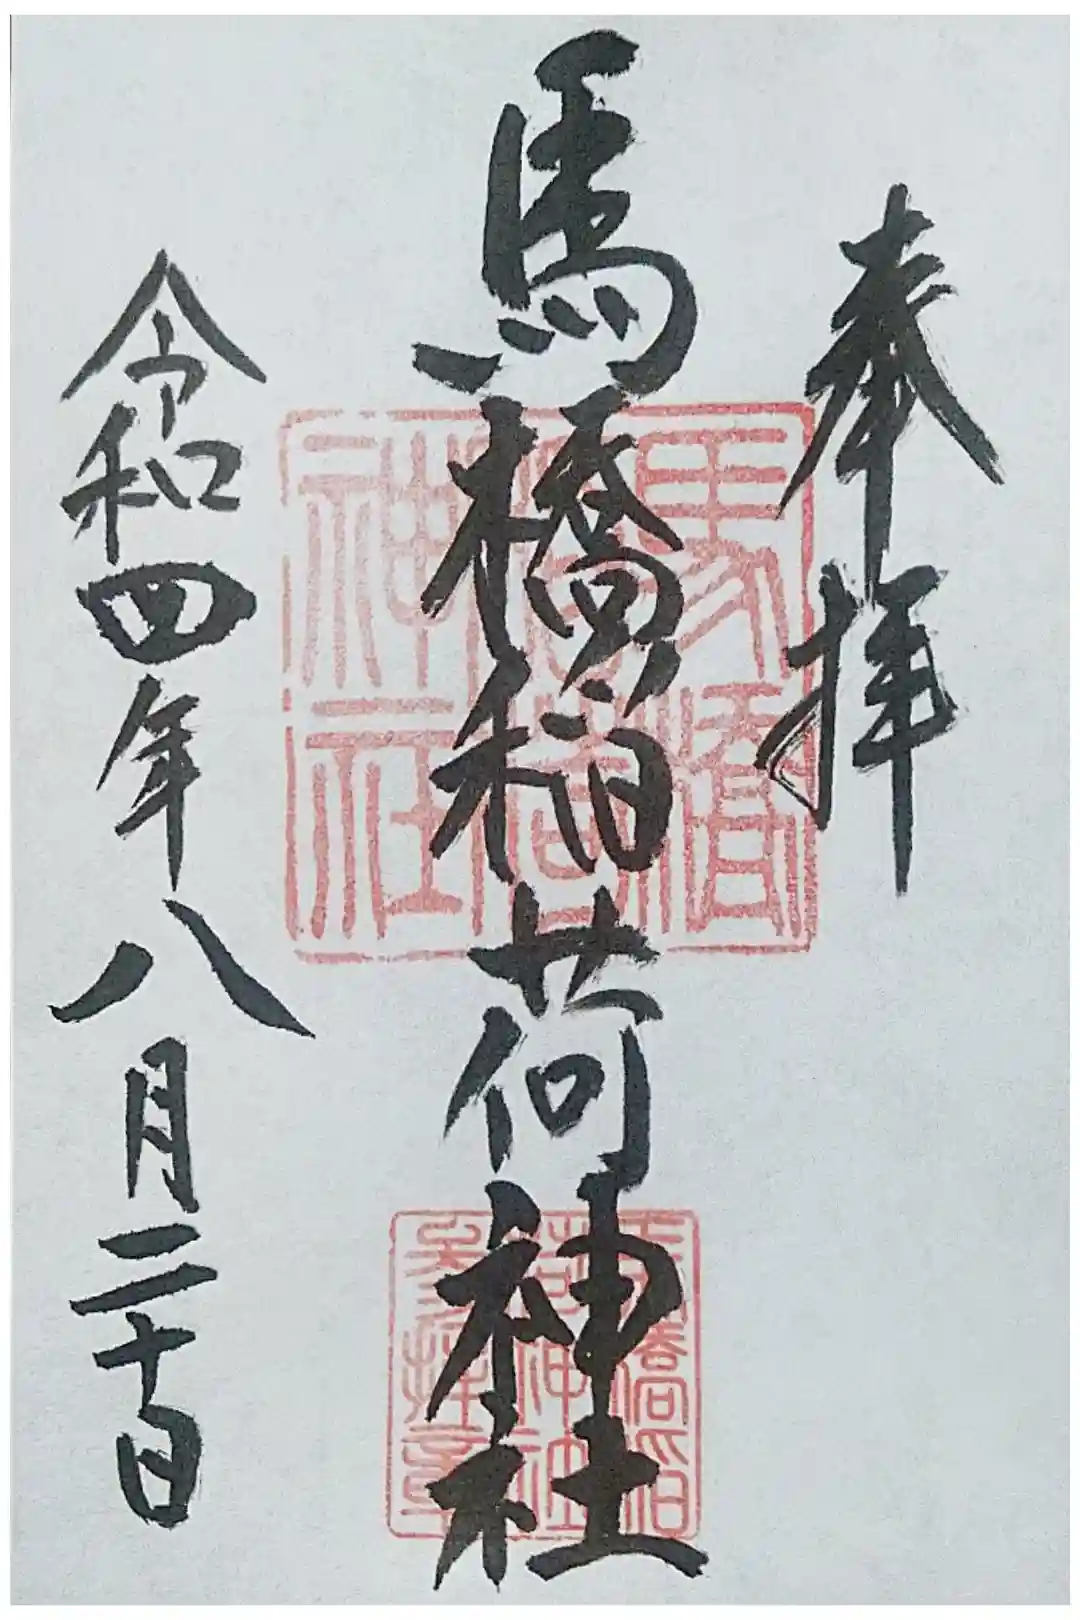 奉拝
馬橋稲荷神社
令和四年八月二十日
馬橋
稲荷
神社
馬橋稲
荷神社
参拝印